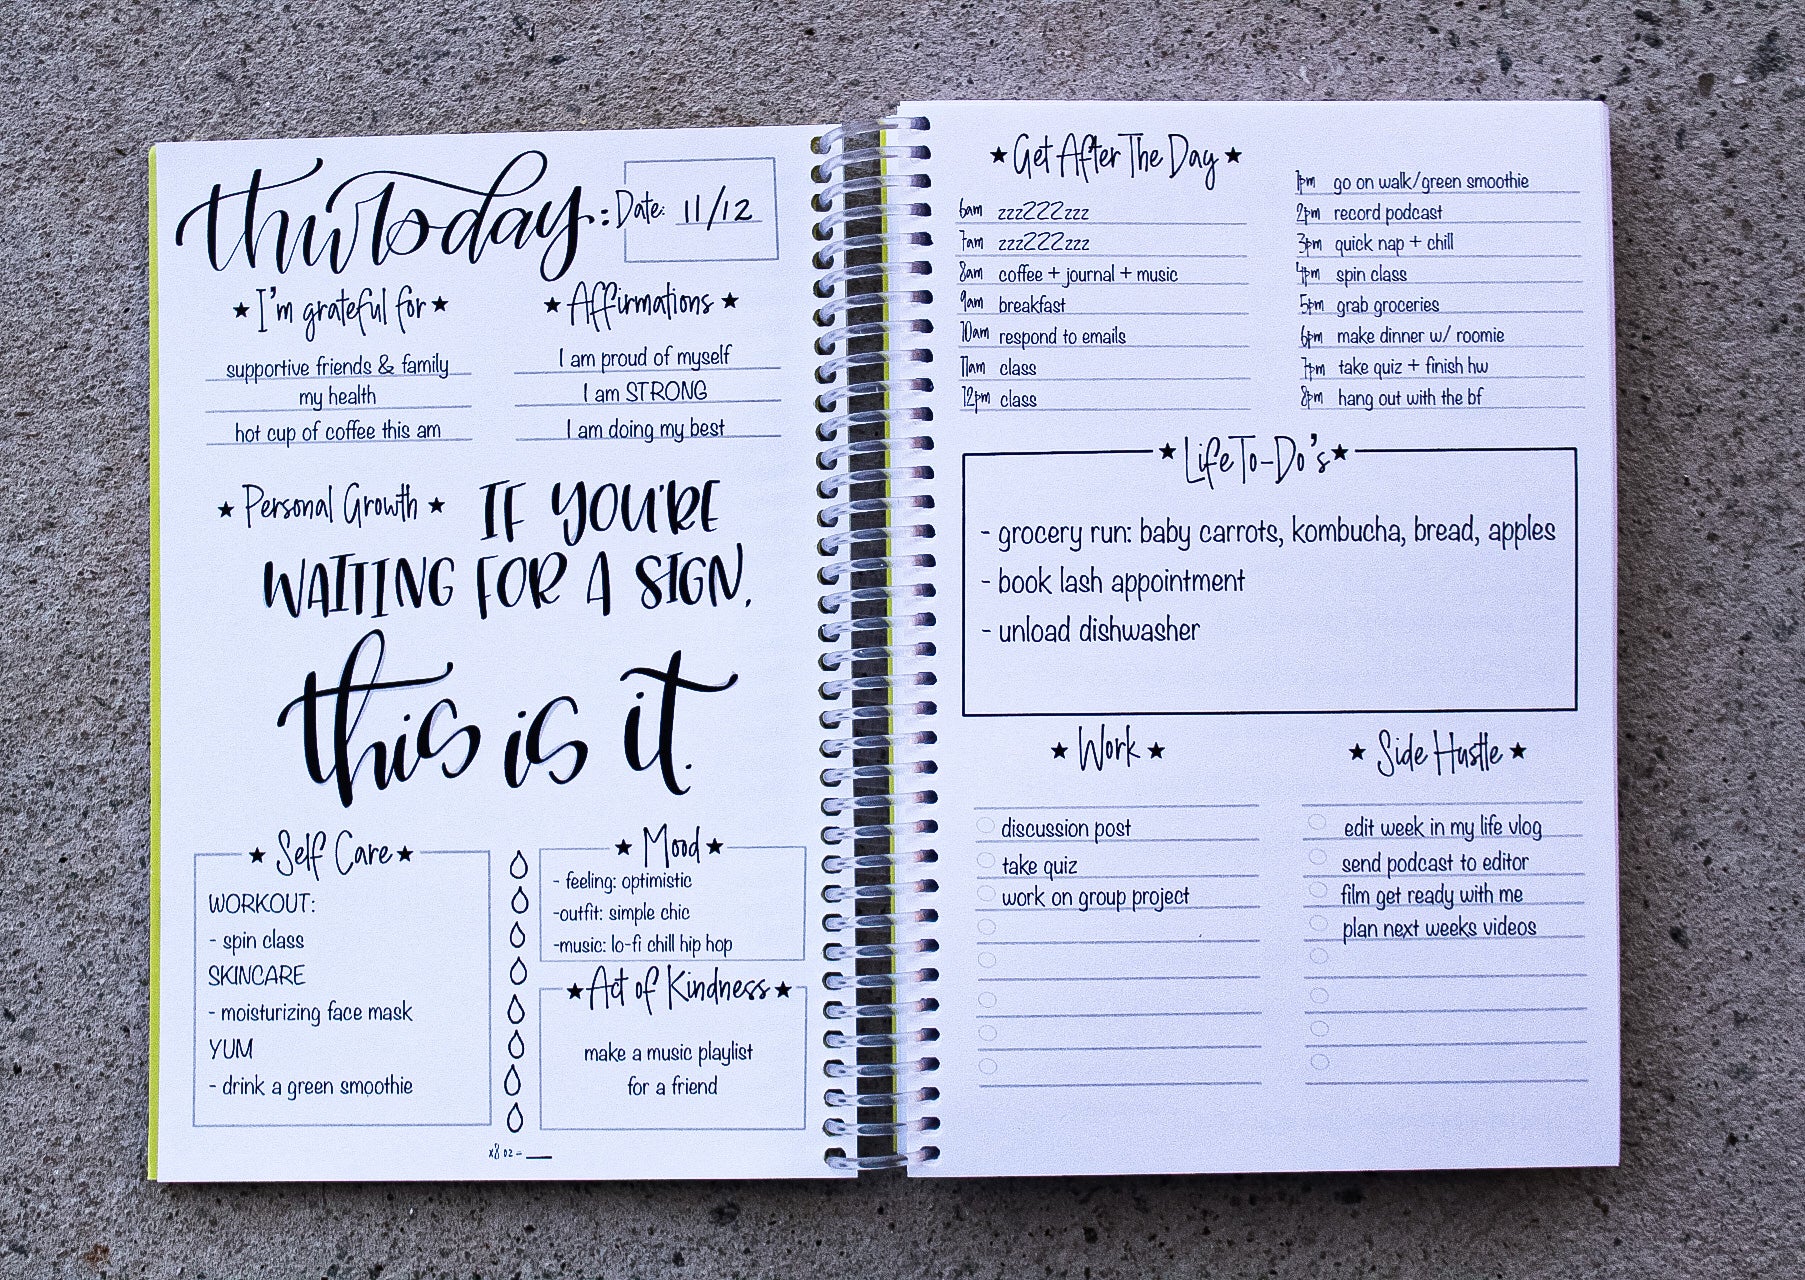 thursday: Date: 11/12
★ I'm grateful for ★
supportive friends & family
my health
hot cup of coffee this am
★ Affirmations ★
I am proud of myself
I am STRONG
I am doing my best
★ Personal Growth ★
IF YOU'RE
WAITING FOR A SIGN,
this is it.
★ Self Care ★
WORKOUT:
- spin class
SKINCARE
- moisturizing face mask
YUM
- drink a green smoothie
x8 oz = ___
★ Mood ★
- feeling: optimistic
-outfit: simple chic
-music: lo-fi chill hip hop
★ Act of Kindness ★
make a music playlist
for a friend
★ Get After The Day ★
6am zzzZZZzzz
7am zzzZZZzzz
8am coffee + journal + music
9am breakfast
10am respond to emails
11am class
12pm class
1pm go on walk/green smoothie
2pm record podcast
3pm quick nap + chill
4pm spin class
5pm grab groceries
6pm make dinner w/ roomie
7pm take quiz + finish hw
8pm hang out with the bf
★ Life To-Do's ★
- grocery run: baby carrots, kombucha, bread, apples
- book lash appointment
- unload dishwasher
★ Work ★
discussion post
take quiz
work on group project
★ Side Hustle ★
edit week in my life vlog
send podcast to editor
film get ready with me
plan next weeks videos